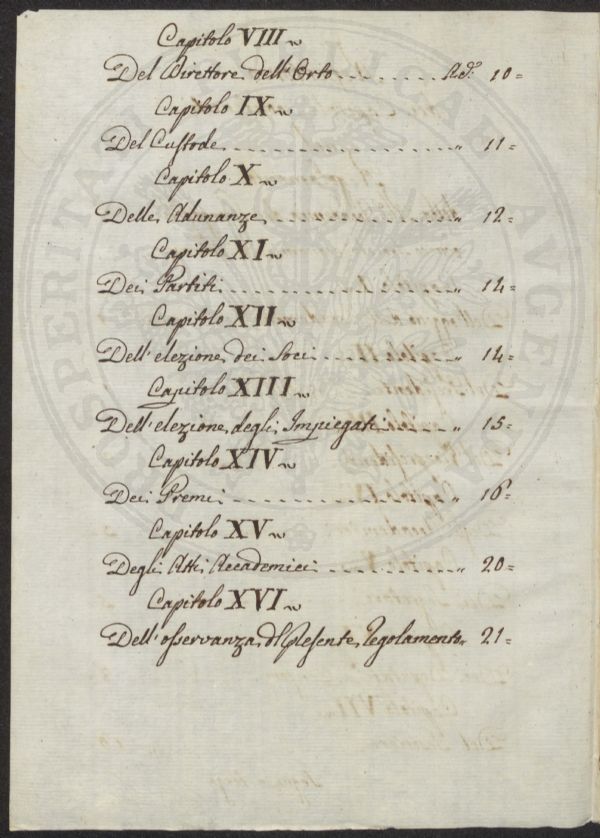 Capitolo VIII
Del Direttore dell'Orto . . . . . . . . 10=
Capitolo IX
Del Custode . . . . . . . . " 11=
Capitolo X
Delle Adunanze . . . . . . . . " 12=
Capitolo XI
Dei Partiti . . . . . . . . " 14=
Capitolo XII
Dell'elezione dei Soci . . . . . . . . " 14=
Capitolo XIII
Dell'elezione degli Impiegati . . . . . . " 15=
Capitolo XIV
Dei Premi . . . . . . . . " 16=
Capitolo XV
Degli Atti Accademici . . . . . . . . " 20=
Capitolo XVI
Dell'osservanza dl Presente Regolamento " 21=
PROSPERITATI PUBLICAE AUGENDAE